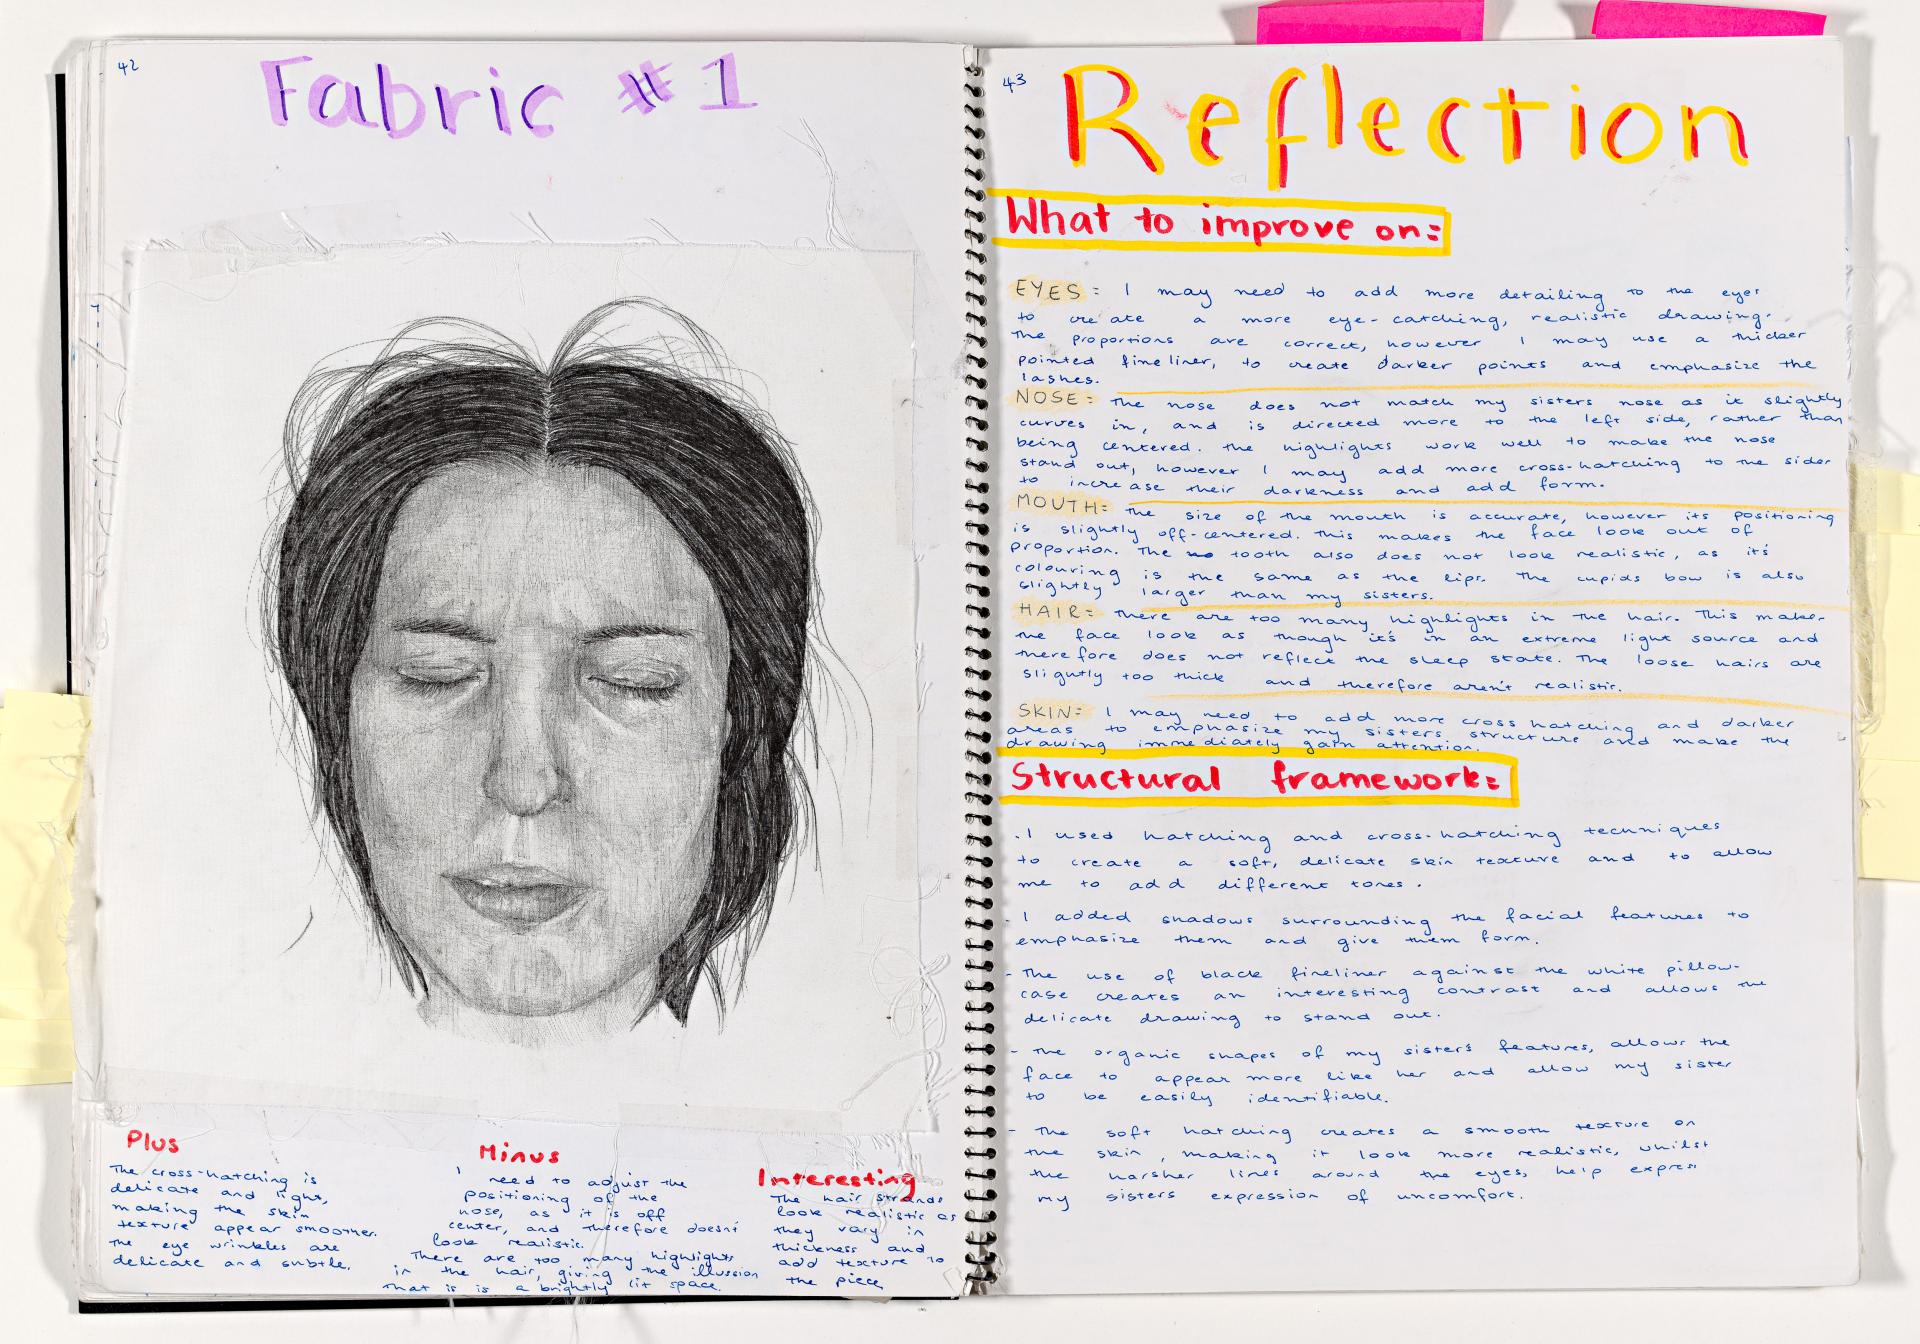 42
Fabric #1
Plus
The cross-hatching is
delicate and light,
making the skin
texture appear smoother.
The eye wrinkles are
delicate and subtle.
Minus
I need to adjust the
positioning of the
nose, as it is off
center, and therefore doesnt
look realistic.
There are too many highlights
in the hair, giving the illussion
that is is a brightly lit space.
Interesting
The hair strands
look realistic as
they vary in
thickness and
add texture to
the piece
43
Reflection
What to improve on:
EYES: I may need to add more detailing to the eyes
to create a more eye-catching, realistic drawing.
The proportions are correct, however I may use a thicker
pointed fineliner, to create darker points and emphasize the
lashes.
NOSE: The nose does not match my sisters nose as it slightly
curves in, and is directed more to the left side, rather than
being centered. The highlights work well to make the nose
stand out, however I may add more cross-hatching to the sides
to increase their darkness and add form.
MOUTH: The size of the mouth is accurate, however its positioning
is slightly off-centered. This makes the face look out of
proportion. The tooth also does not look realistic, as it's
colouring is the same as the lips. The cupids bow is also
slightly larger than my sisters.
HAIR: There are too many highlights in the hair. This makes
the face look as though it's in an extreme light source and
therefore does not reflect the sleep state. The loose hairs are
slightly too thick and therefore aren't realistic.
SKIN: I may need to add more cross hatching and darker
areas to emphasize my sisters structure and make the
drawing immediately gain attention.
Structural framework:
. I used hatching and cross-hatching techniques
to create a soft, delicate skin texture and to allow
me to add different tones.
- I added shadows surrounding the facial features to
emphasize them and give them form.
- The use of black fineliner against the white pillow-
case creates an interesting contrast and allows the
delicate drawing to stand out.
- The organic shapes of my sister's features, allows the
face to appear more like her and allow my sister
to be easily identifiable.
- The soft hatching creates a smooth texture on
the skin, making it look more realistic, whilst
the harsher lines around the eyes, help express
my sisters expression of uncomfort.